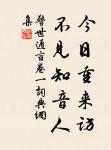 今日重来訪
不見知音人
警世通言卷一詞典網
集